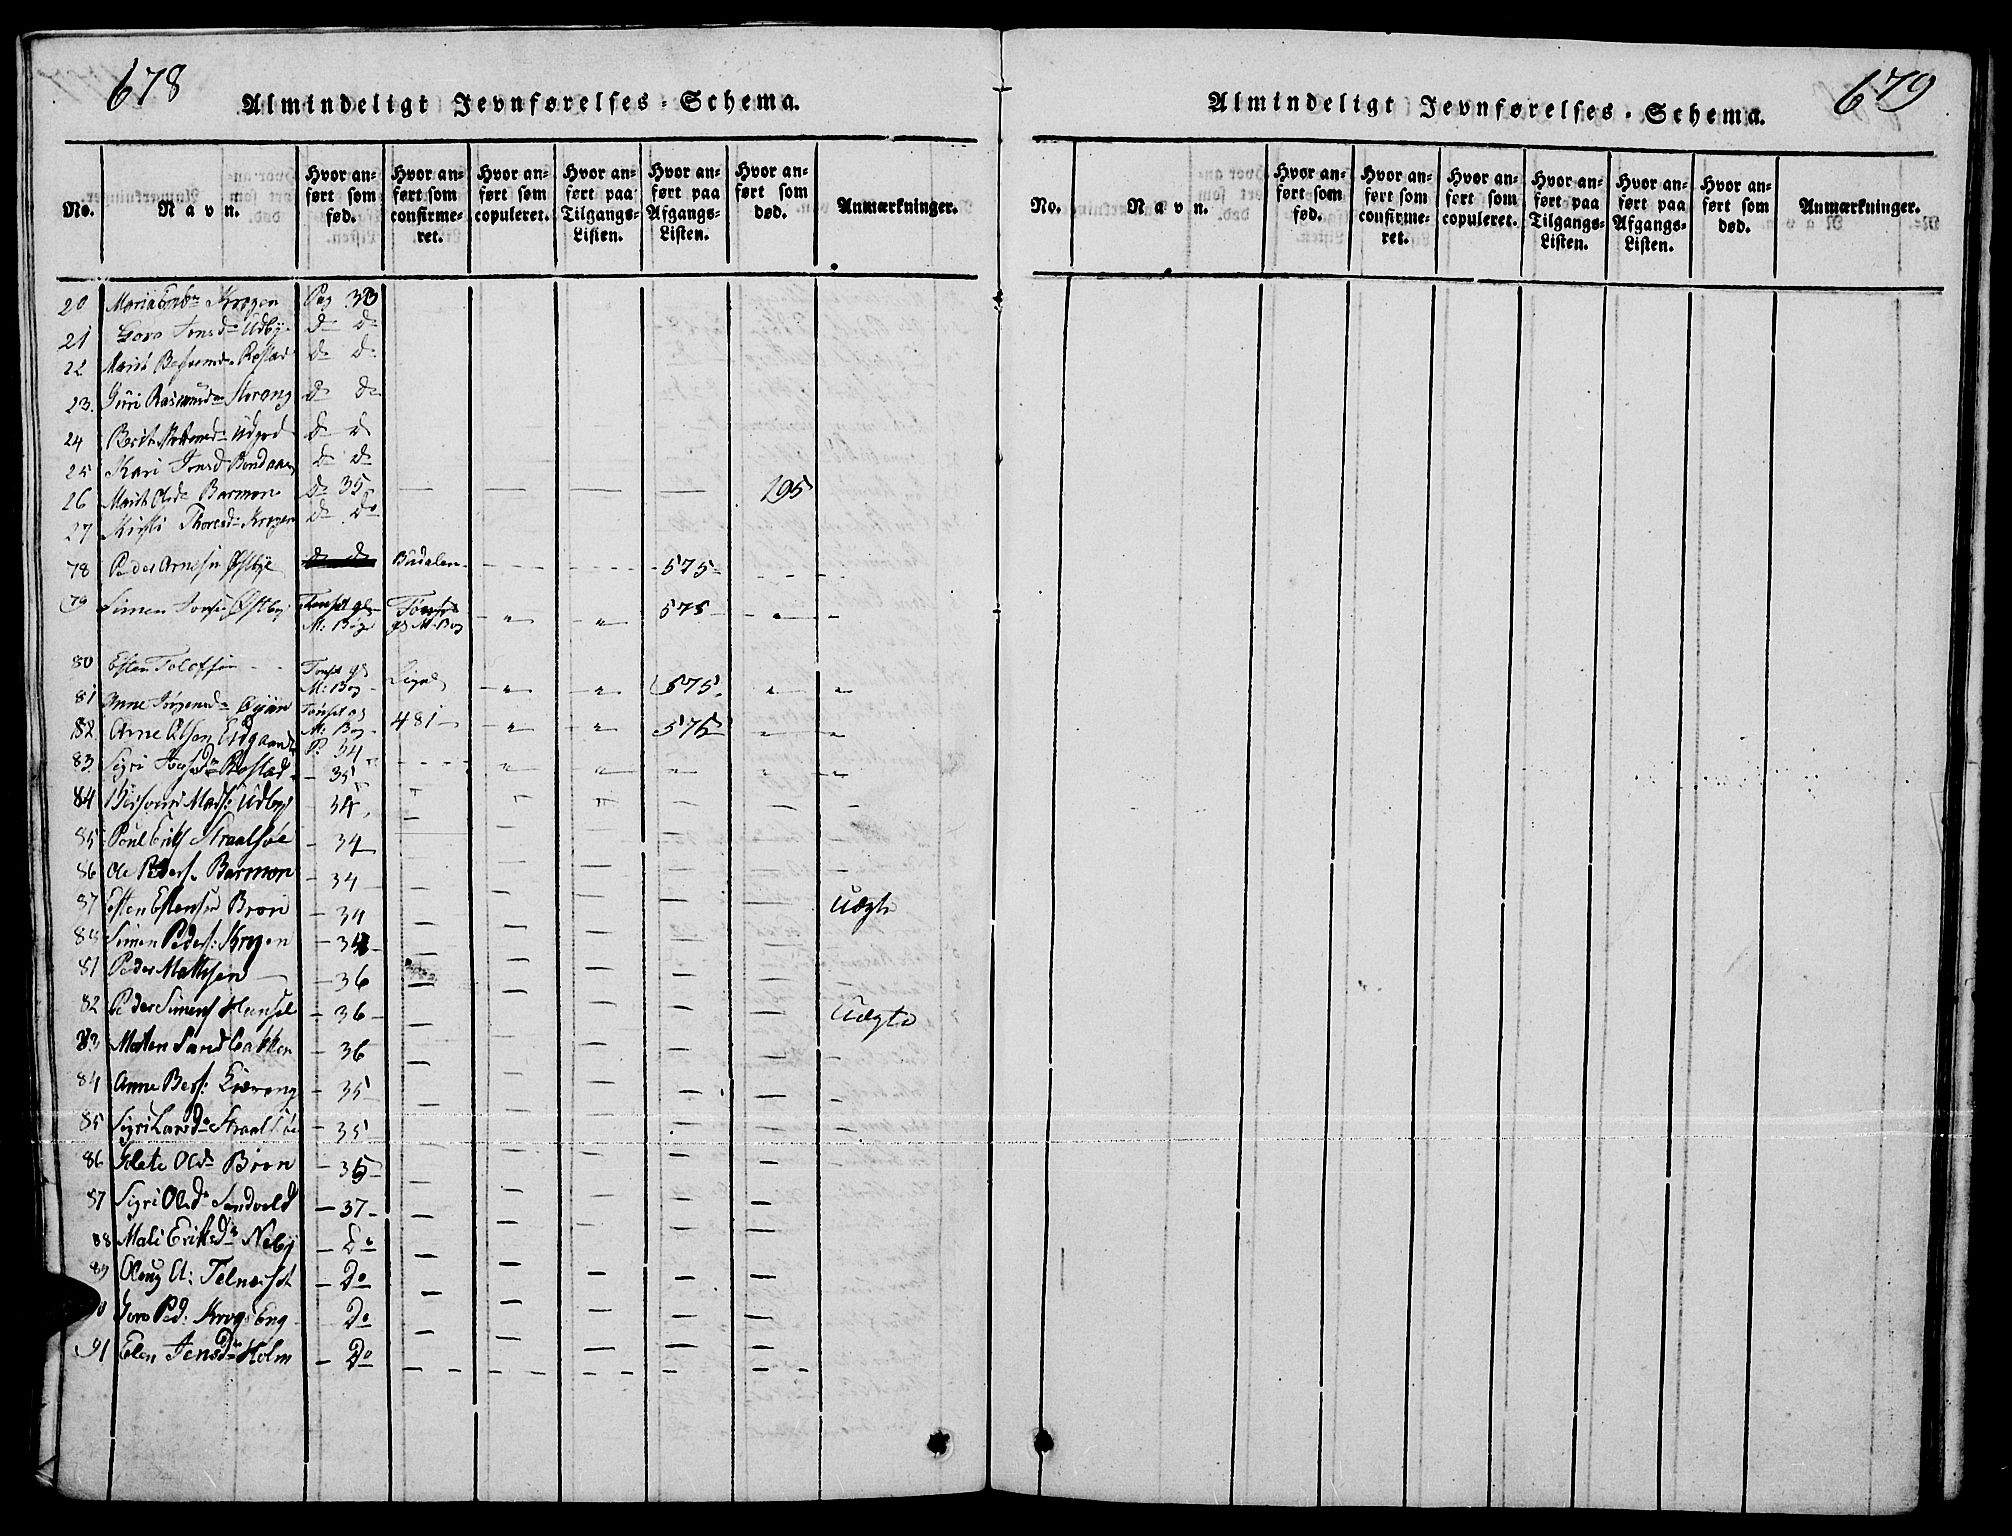 678
Almindeligt Jevnførelses-Schema.
No. Navn. Hvor anført som fød. Hvor anført som confirmeret. Hvor anført som copuleret. Hvor anført paa Tilgangs-Listen. Hvor anført paa Afgangs-Listen. Hvor anført som død. Anmærkninger.
20 Maria Krogen Pag 33
21 Goro Jonsd Udby D D
22 Marit Rostad D D
23. Guri Rasmusd D D
24 Berit Udgord D D
25 Kari Jonsd D D
26 Marit Olsd Barmon D 35 — — — — 195
27 Kirsti Thoresd Krogen D Do
78 Peder Arnesen Østbye D D Budalen - - - 575 - - -
79 Simen Jonsen Østby Tønset gl M: Bog Tønset gl M: Bog - " - " 575 - " -
80 Esten Tolofsen Tønset gl M: Bog - " - " 575. " "
81 Anne Jørgensd Øyan Tønset gl M: Bog 481 - " - " 575 " -
82 Arne Olsen Eidgaard P. 34
83. Sigri Rostad - 35
84 Madss: Udbye - 34
85 Poul Eriks Straalsøe - 34
86 Ole Peders. Barmon - 34
87 Esten Estensen Broen - 34 Uægte
88 Simen Peders: Krogen - 34
81 Peder Mathsen - 36
82 Peder Simens - 36 Uægte
83 Morten Sandbakken - 36
84 Anne Bers: - 35
85 Sigri Larsd Straalsøe - 35
86 Olsd Broen - 35
87 Sigri Olsd Sandvold - 37
88 Mali Eriksd Neby - Do
89 Telneset - Do
Goro Ped: Krogs Eng - Do
91 Elen Jensd Holm - Do
679
Almindeligt Jevnførelses-Schema.
No. Navn. Hvor anført som fød. Hvor anført som confirmeret. Hvor anført som copuleret. Hvor anført paa Tilgangs-Listen. Hvor anført paa Afgangs-Listen. Hvor anført som død. Anmærkninger.